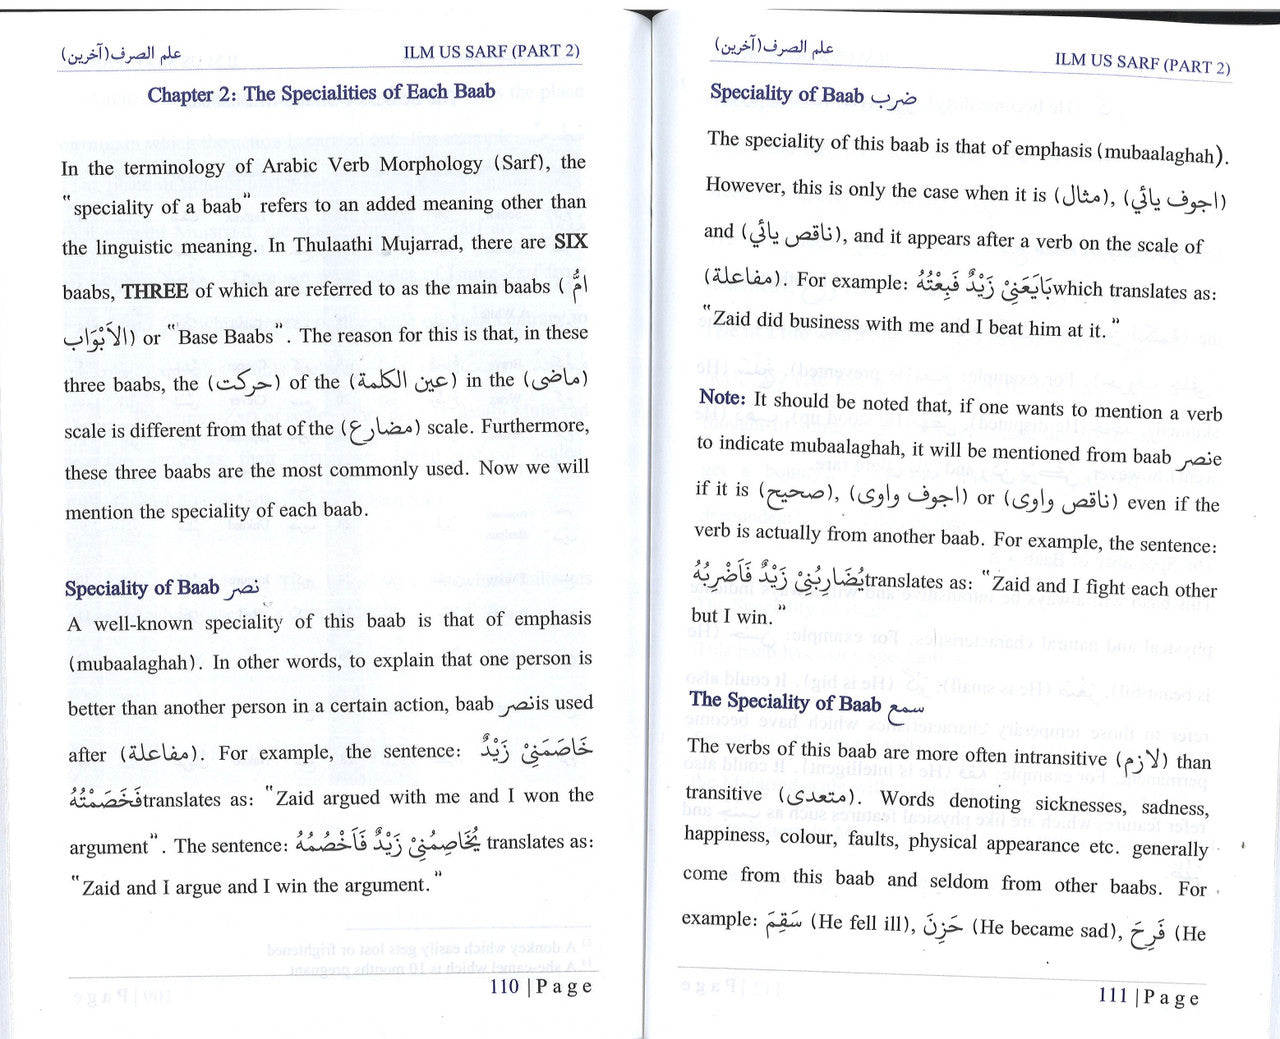 علم الصرف(آخرین) ILM US SARF (PART 2)
Chapter 2: The Specialities of Each Baab
In the terminology of Arabic Verb Morphology (Sarf), the
"speciality of a baab" refers to an added meaning other than
the linguistic meaning. In Thulaathi Mujarrad, there are SIX
baabs, THREE of which are referred to as the main baabs (أمُّ
الاَبْوَاب) or "Base Baabs". The reason for this is that, in these
three baabs, the (حركت) of the (عين الكلمة) in the (ماضى)
scale is different from that of the (مضارع) scale. Furthermore,
these three baabs are the most commonly used. Now we will
mention the speciality of each baab.
Speciality of Baab نصر
A well-known speciality of this baab is that of emphasis
(mubaalaghah). In other words, to explain that one person is
better than another person in a certain action, baab نصر is used
after (مفاعلة). For example, the sentence: خَاصَمَنِيْ زَيْدٌ
فَخَصَمْتُهُ translates as: "Zaid argued with me and I won the
argument". The sentence: يُخَاصِمُنِيْ زَيْدٌ فَاَخْصُمُهُ translates as:
"Zaid and I argue and I win the argument."
110 | P a g e
علم الصرف(آخرین) ILM US SARF (PART 2)
Speciality of Baab ضرب
The speciality of this baab is that of emphasis (mubaalaghah).
However, this is only the case when it is (مثال), (اجوف يائي)
and (ناقص يائي), and it appears after a verb on the scale of
(مفاعلة). For example: بَايَعَنِيْ زَيْدٌ فَبِعْتُهُ which translates as:
"Zaid did business with me and I beat him at it."
Note: It should be noted that, if one wants to mention a verb
to indicate mubaalaghah, it will be mentioned from baab نصر e
if it is (صحيح), (اجوف واوى) or (ناقص واوى) even if the
verb is actually from another baab. For example, the sentence:
يُضَارِبُنِيْ زَيْدٌ فَاَضْرِبُهُ translates as: "Zaid and I fight each other
but I win."
The Speciality of Baab سمع
The verbs of this baab are more often intransitive (لازم) than
transitive (متعدى). Words denoting sicknesses, sadness,
happiness, colour, faults, physical appearance etc. generally
come from this baab and seldom from other baabs. For
example: سَقِمَ (He fell ill), حَزِنَ (He became sad), فَرِحَ (He
111 | P a g e